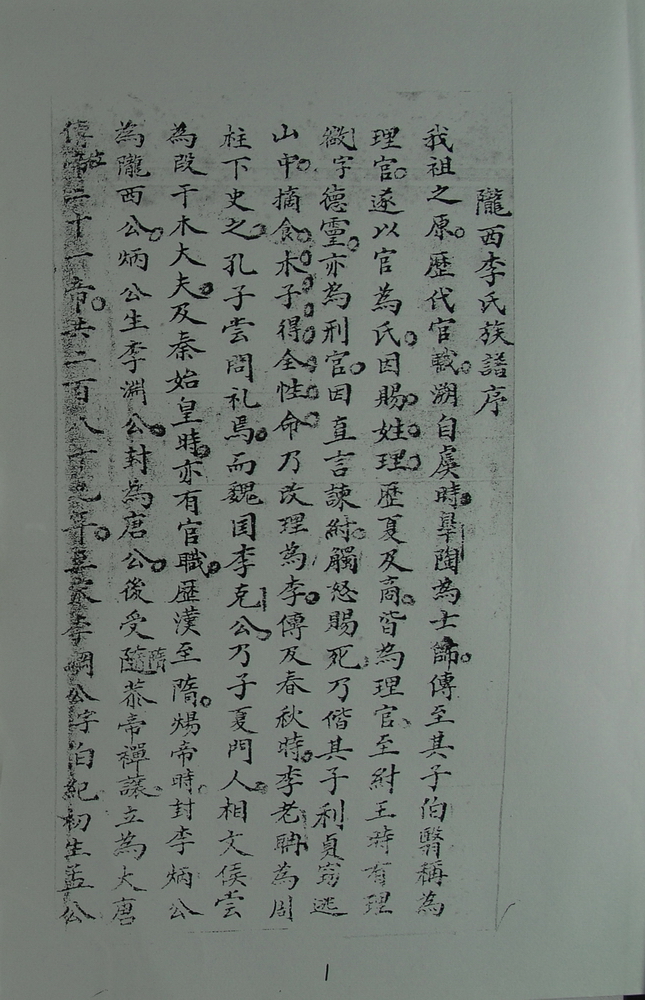 隴西李氏族譜序
我祖之原。歷代官職。溯自虞時。皋陶為士師。傳至其子伯翳稱為
理官。遂以官為氏。因賜姓理。歷夏及商。皆為理官、至紂王時有理
徵字德靈。亦為刑官。因直言諫紂。觸怒賜死、乃偕其子利貞窈逃
山中。摘食木子得全性命。乃改理為李。傳及春秋時。李老聃為周
柱下史之。孔子嘗問礼焉。而魏国李克公。乃子夏門人。相文侯嘗
為段干木大夫。及秦始皇時。亦有官職。歷漢至隋。煬帝時。封李炳公
為隴西公。炳公生李淵公。封為唐公。後受隨隋恭帝禪讓。立為大唐
傳帝二十一帝。共二百八十九年。李綱公字伯紀初生孟公
1